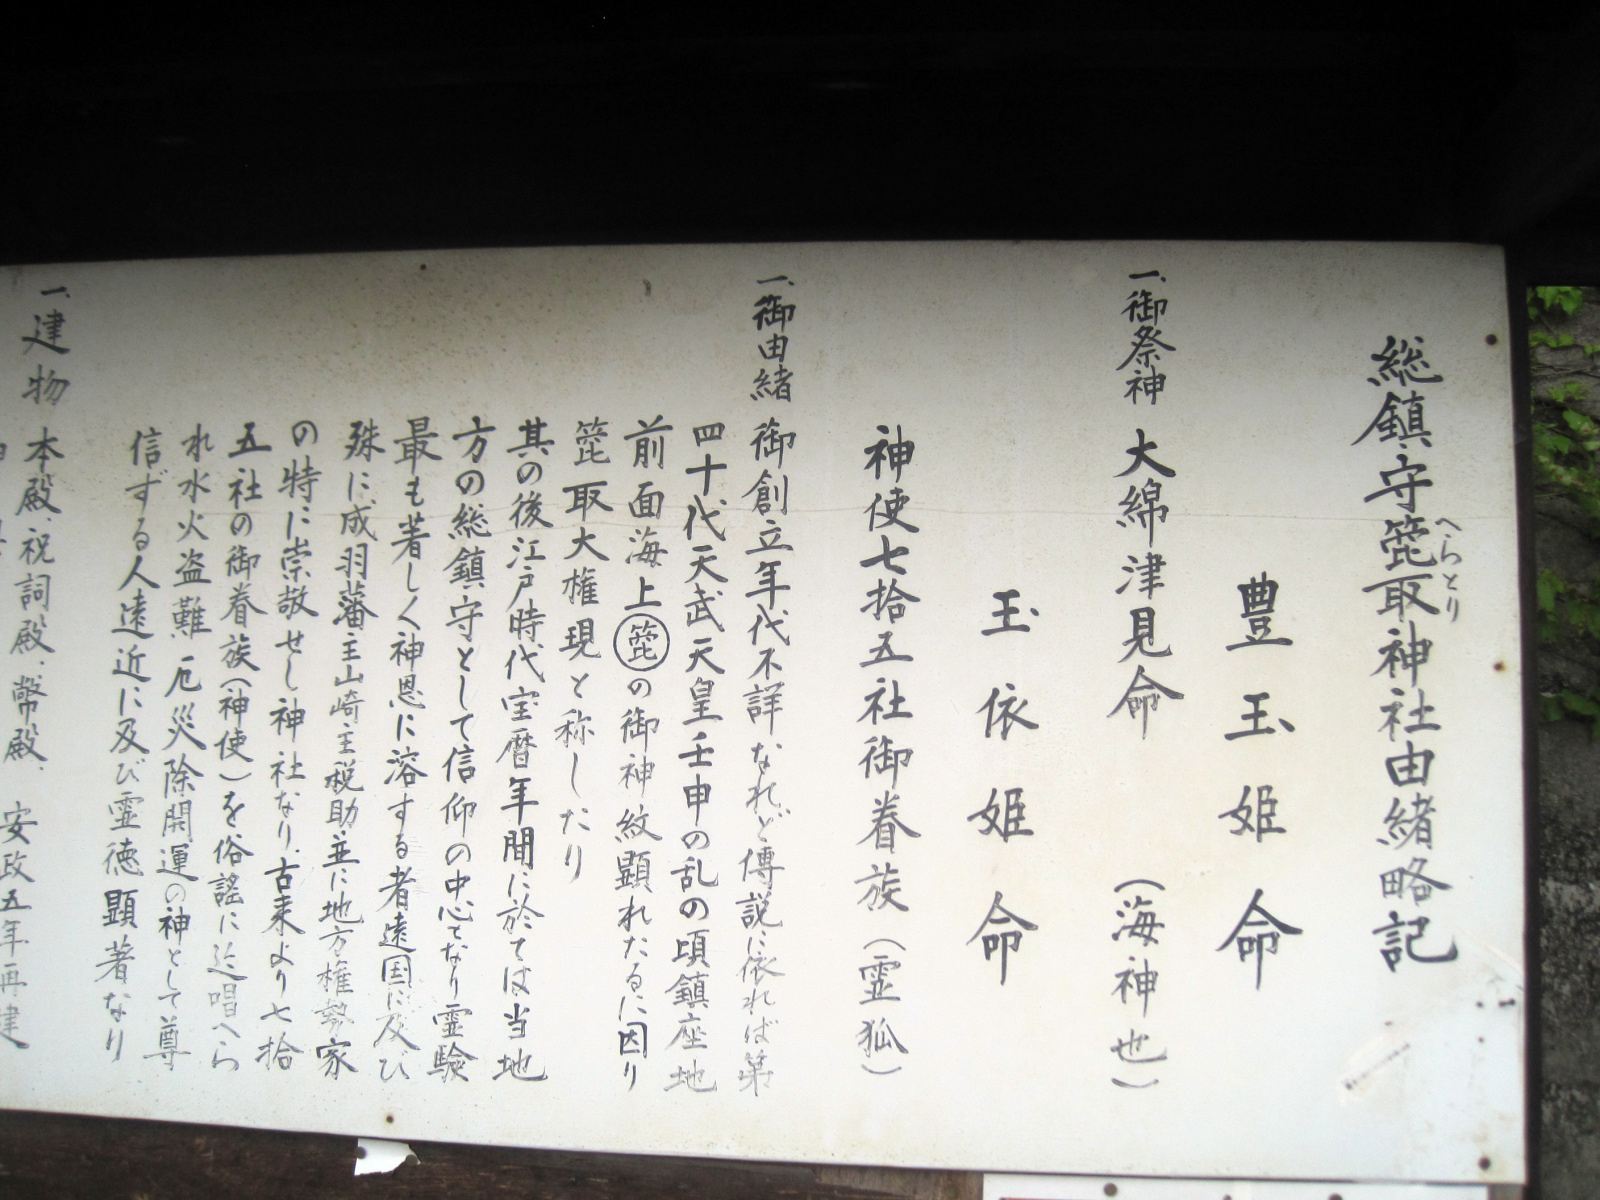 総鎮守箆取神社由緒略記
へらとり
豊玉姫命
一、御祭神 大綿津見命 (海神也)
玉依姫命
神使七拾五社御眷族(霊狐)
一、御由緒 御創立年代不詳なれど傳説に依れば第
四十代天武天皇壬申の乱の頃鎮座地
前面海上箆の御神紋顕れたるに因り
箆取大権現と称したり
其の後江戸時代宝暦年間に於ては当地
方の総鎮守として信仰の中心てなり霊験
最も著しく神恩に溶する者遠国に及び
殊に成羽藩主山崎主税助並に地方権勢家
の特に崇敬せし神社なり、古来より七拾
五社の御眷族(神使)を俗謡に迄唱へら
れ水火盗難厄災除開運の神として尊
信ずる人遠近に及び霊徳顕著なり
一、建物 本殿、祝詞殿、幣殿、 安政五年再建